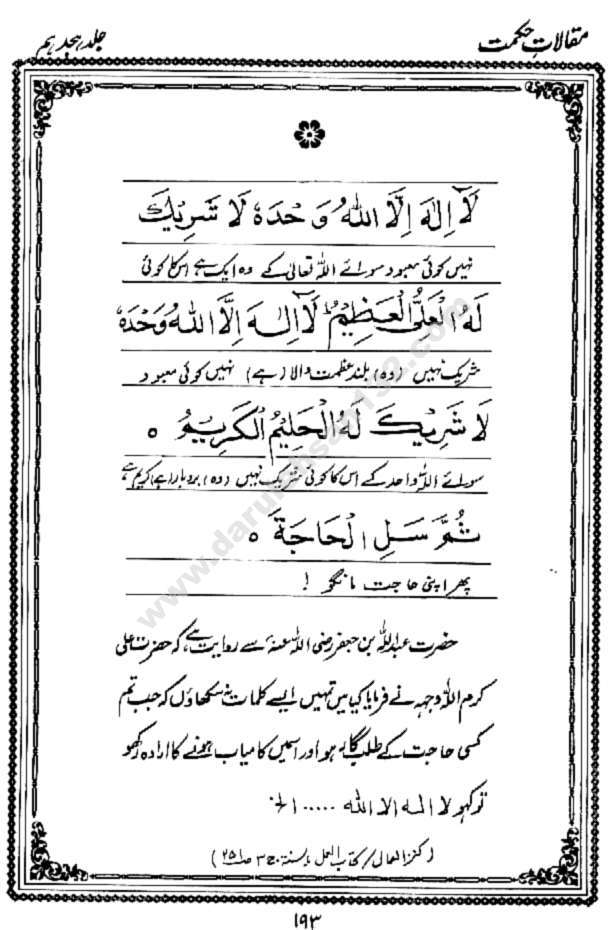 مقالاتِ حکمت
جلد ہجدہم
لَآ اِلٰهَ اِلَّا اللّٰهُ وَحْدَهٗ لَا شَرِيْكَ
نہیں کوئی معبود سوائے اللہ تعالیٰ کے وہ ایک ہے اس کا کوئی
لَهُ الْعَلِيُّ الْعَظِيْمُ ؕ لَآ اِلٰهَ اِلَّا اللّٰهُ وَحْدَهٗ
شریک نہیں (وہ) بلند عظمت والا (ہے) نہیں کوئی معبود
لَا شَرِيْكَ لَهُ الْحَلِيْمُ الْكَرِيْمُ ○
سوائے اللہ واحد کے اس کا کوئی شریک نہیں (وہ) بردبار (ہے) کریم ہے
ثُمَّ سَلِ الْحَاجَةَ ○
پھر اپنی حاجت مانگو !
حضرت عبداللہ بن جعفر رضی اللہ عنہٗ سے روایت ہے، کہ حضرت علی
کرم اللہ وجہہ نے فرمایا کیا میں تمہیں ایسے کلمات نہ سکھاؤں کہ جب تم
کسی حاجت کے طلبگار ہو اور اسمیں کامیاب ہونے کا ارادہ رکھو
تو کہو لا الہ الا اللہ ..... الخ
(کنز العمال / کتاب العمل بالسنۃ ج ۳ صـ ۲۵۱)
۱۹۳
www.darulehsan132.com